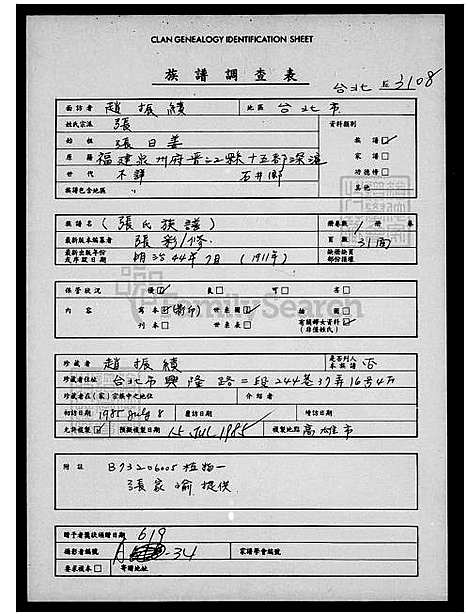 CLAN GENEALOGY IDENTIFICATION SHEET
族譜調查表
台北 3108
面訪者 趙振績 地區 台北市
姓氏宗派 張 資料類別
始祖 張日姜 族譜
原籍 福建泉州府晋江縣十五都深滬 家譜
世代 不詳 石井鄉 功德榜
族譜包含地區 其他
族譜名 (張氏族譜) 冊卷數 1 冊 卷
最新版本編纂者 張彩修 頁數 31面
最新出版年份 明治44年7月 (1911年)
或序跋日期
保管狀況 優 良 可 劣
內容 寫本 世系圖 插圖
刊本 世系表 有關婦女資料
(非僅姓氏)
珍藏者 趙振績 是否列入本族譜 否
珍藏者住址 台北市興隆路二段244巷37弄16号4F
珍藏者在(家)宗族中之地位 介紹者
初訪日期 1985 July 8 复訪日期 增訪日期
允許複製 預擬複製日期 15 JUL 1985 複製地點 高雄市
附註 B73206005 植始一
張家瑜提供
贈予者獎狀頒贈日期 619
攝影者編號 A -34 家譜學會編號
要求複本 寄贈地址
FamilySearch